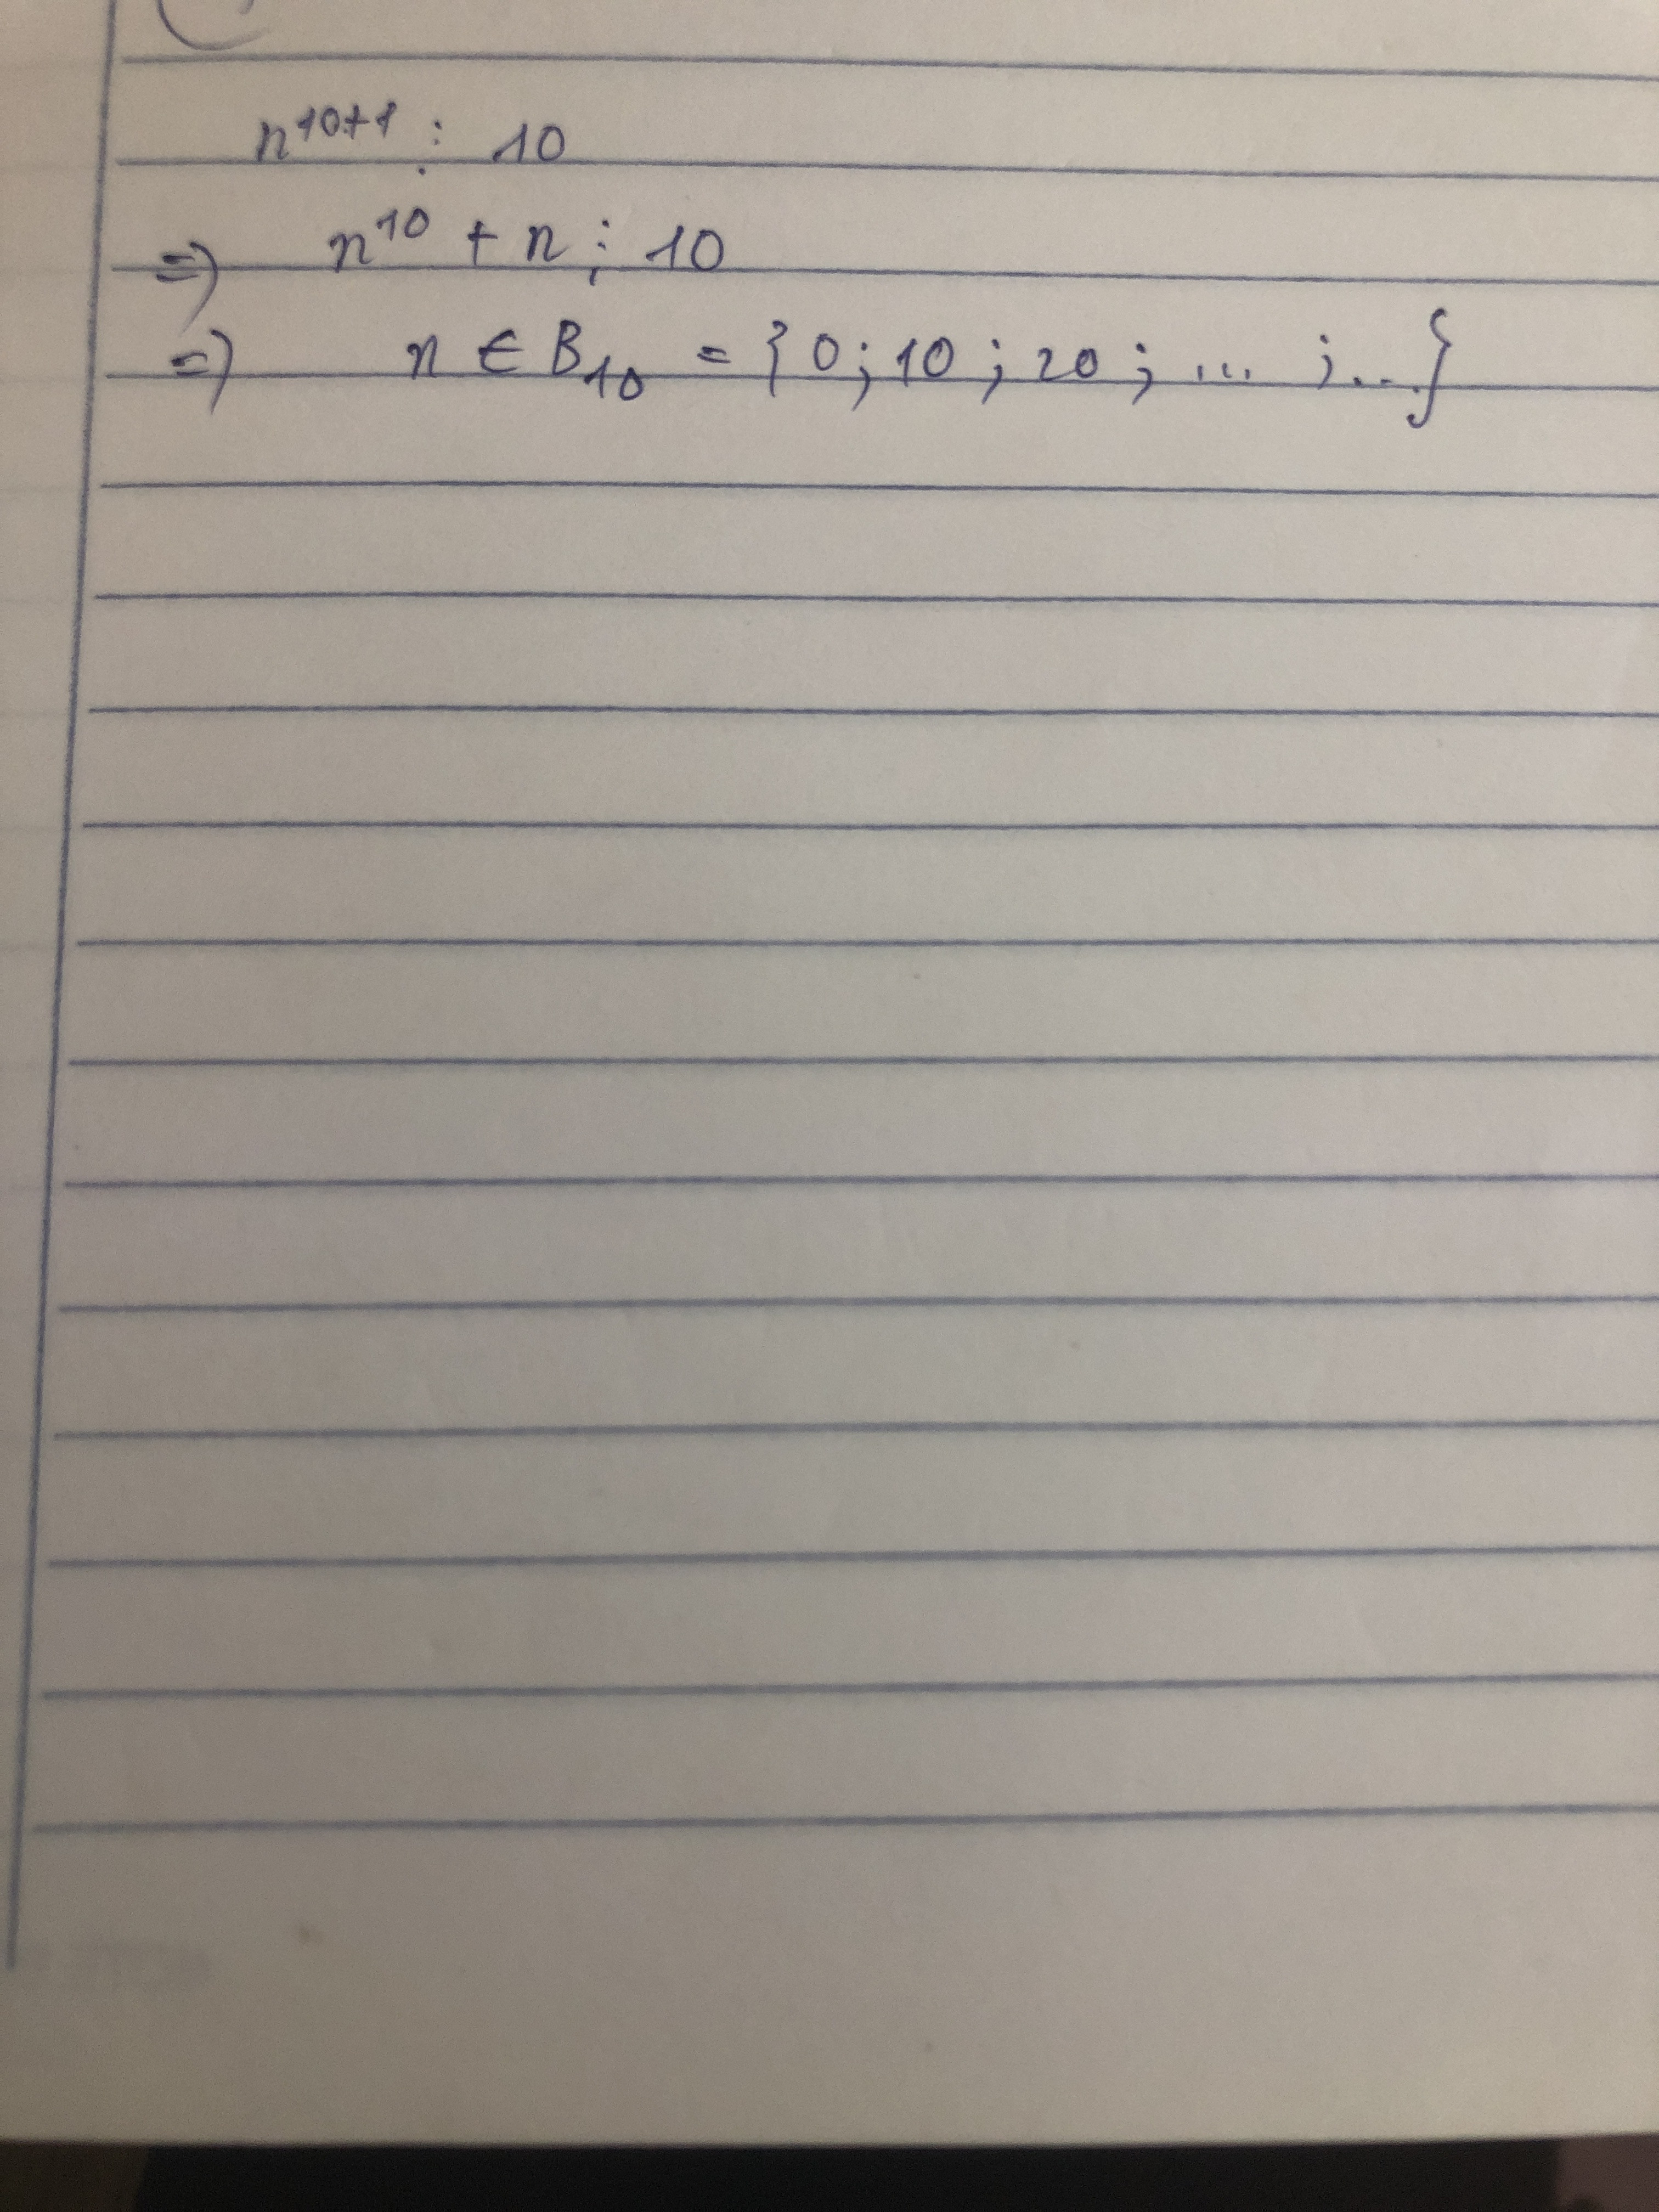 n^{10+1} ⋮ 10
=) n^{10} + n ⋮ 10
=) n ∈ B_{10} = {0; 10; 20; ... ; ...}